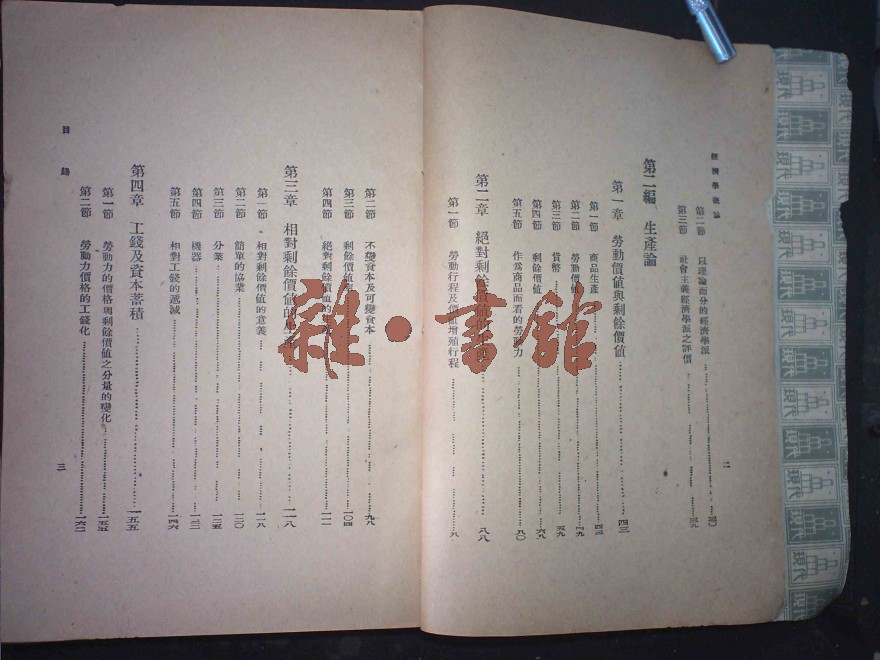 經濟學概論
第二節 以理論而分的經濟學派
第三節 社會主義經濟學派之評價
二
第二編 生產論
第一章 勞動價值與剩餘價值 四三
第一節 商品生產 四三
第二節 勞動價值
第三節 貨幣 五九
第四節 剩餘價值 六八
第五節 作為商品而看的勞動力 八〇
第二章 絕對剩餘價值 八八
第一節 勞動行程及價值增殖行程 八
第二節 不變資本及可變資本 九八
第三節 剩餘價值率 一〇四
第四節 絕對剩餘價值的 一一一
第三章 相對剩餘價值的生產 一一八
第一節 相對剩餘價值的意義 一一八
第二節 簡單的協業 一二〇
第三節 分業 一二五
第四節 機器 一三二
第五節 相對工錢的遞減 一四六
第四章 工錢及資本蓄積 一五五
第一節 勞動力的價格與剩餘價值之分量的變化 一五五
第二節 勞動力價格的工錢化 一六二
目錄
三
雜·書館
現代